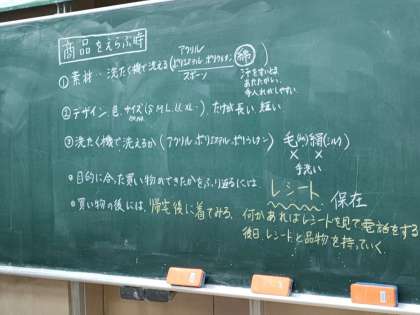 商品をえらぶ時
アクリル
①素材・洗たく機で洗える(ポリエステル ポリウレタン 綿
スポーツ
汗をすいとる
あたたかい
手入れがしやすい
②デザイン、色、サイズ(S M L LL XL…)、たけが長い、短い
③洗たく機で洗えるか(アクリル ポリエステル ポリウレタン) 毛(ウール) 絹(シルク)
× ×
手洗い
◦目的に合った買い物のできたかをふり返るには、 レシート 保在
◦買い物の後には、帰宅後に着てみる。何かあればレシートを見て電話をする
後日、レシートと品物を持っていく。